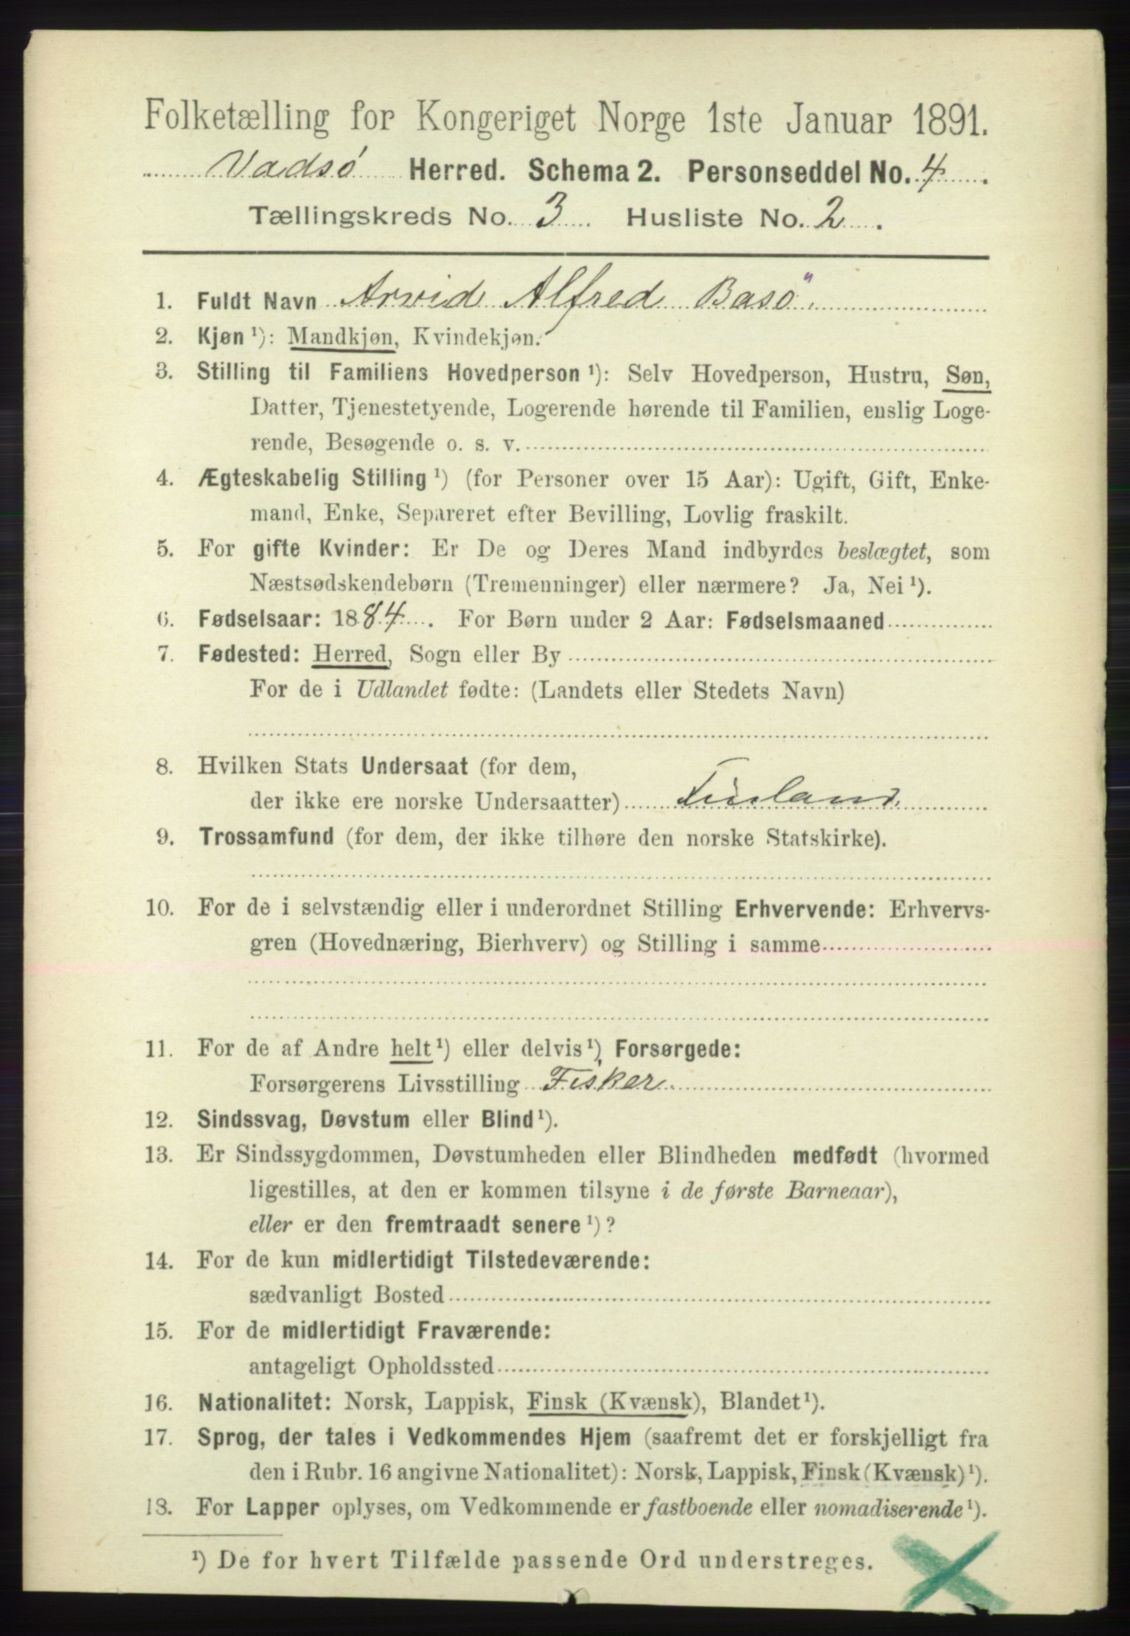 Folketælling for Kongeriget Norge 1ste Januar 1891.
Vadsø Herred. Schema 2. Personseddel No. 4.
Tællingskreds No. 3. Husliste No. 2.
1. Fuldt Navn Arvid Alfred Basö.
2. Kjøn ¹): Mandkjøn, Kvindekjøn.
3. Stilling til Familiens Hovedperson ¹): Selv Hovedperson, Hustru, Søn,
Datter, Tjenestetyende, Logerende hørende til Familien, enslig Loge-
rende, Besøgende o. s. v.
4. Ægteskabelig Stilling ¹) (for Personer over 15 Aar): Ugift, Gift, Enke-
mand, Enke, Separeret efter Bevilling, Lovlig fraskilt.
5. For gifte Kvinder: Er De og Deres Mand indbyrdes beslægtet, som
Næstsødskendebørn (Tremenninger) eller nærmere? Ja, Nei ¹).
6. Fødselsaar: 1884. For Børn under 2 Aar: Fødselsmaaned
7. Fødested: Herred, Sogn eller By
For de i Udlandet fødte: (Landets eller Stedets Navn)
8. Hvilken Stats Undersaat (for dem,
der ikke ere norske Undersaatter) Finland.
9. Trossamfund (for dem, der ikke tilhøre den norske Statskirke).
10. For de i selvstændig eller i underordnet Stilling Erhvervende: Erhvervs-
gren (Hovednæring, Bierhverv) og Stilling i samme
11. For de af Andre helt ¹) eller delvis ¹) Forsørgede:
Forsørgerens Livsstilling Fisker.
12. Sindssvag, Døvstum eller Blind ¹).
13. Er Sindssygdommen, Døvstumheden eller Blindheden medfødt (hvormed
ligestilles, at den er kommen tilsyne i de første Barneaar),
eller er den fremtraadt senere ¹)?
14. For de kun midlertidigt Tilstedeværende:
sædvanligt Bosted
15. For de midlertidigt Fraværende:
antageligt Opholdssted
16. Nationalitet: Norsk, Lappisk, Finsk (Kvænsk), Blandet ¹).
17. Sprog, der tales i Vedkommendes Hjem (saafremt det er forskjelligt fra
den i Rubr. 16 angivne Nationalitet): Norsk, Lappisk, Finsk (Kvænsk) ¹).
18. For Lapper oplyses, om Vedkommende er fastboende eller nomadiserende ¹).
¹) De for hvert Tilfælde passende Ord understreges.